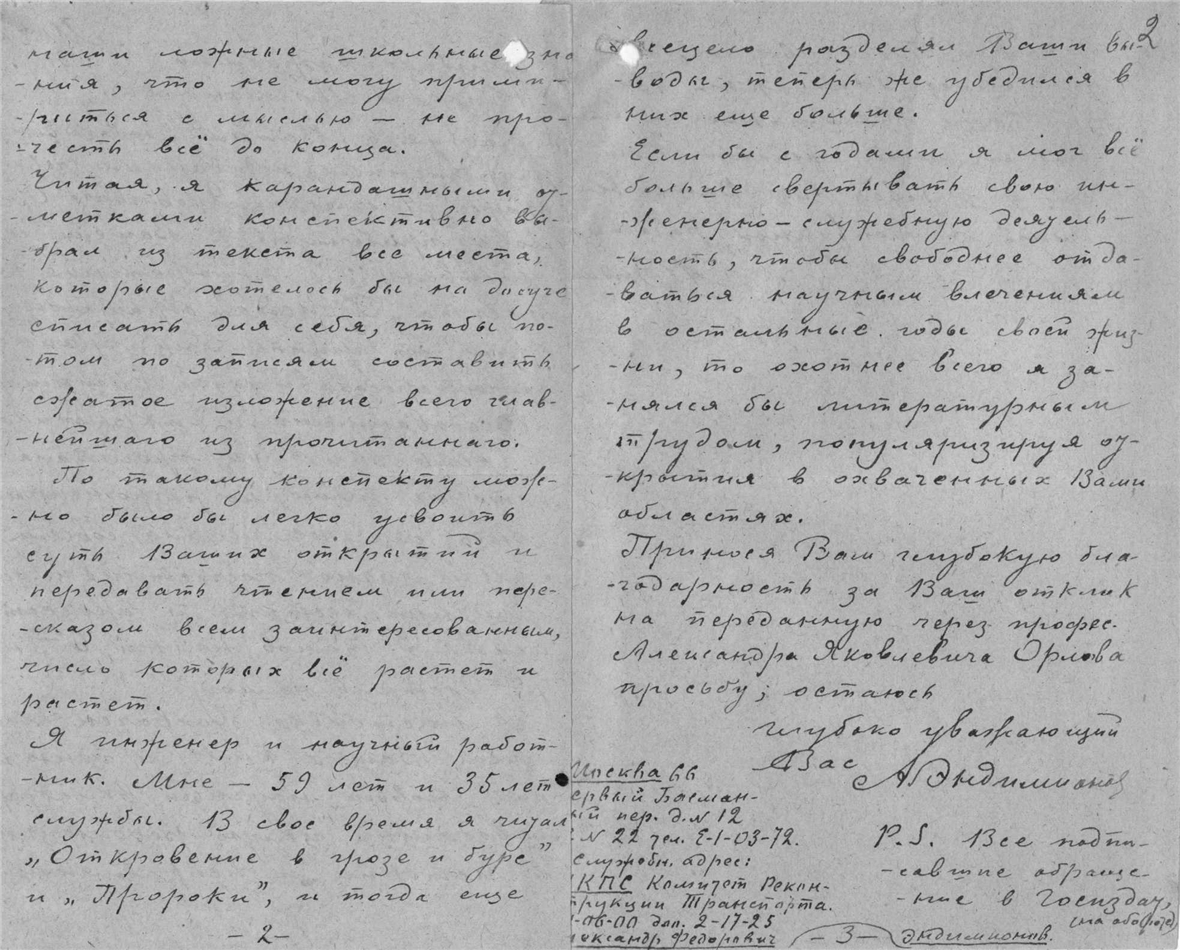 наши ложные школьные зна
-ния, что не могу прими-
-риться с мыслью — не про-
-честь всё до конца.
Читая, я карандашными от-
-метками конспективно вы-
-брал из текста все места,
которые хотелось бы на досуге
списать для себя, чтобы по-
-том по записям составить
сжатое изложение всего глав-
-нейшаго из прочитаннаго.
По такому конспекту мож-
-но было бы легко усвоить
суть Ваших открытий и
передавать чтением или пере-
-сказом всем заинтересованным,
число которых всё растет и
растет.
Я инженер и научный работ-
-ник. Мне — 59 лет и 35 лет
службы. В свое время я читал
„Откровение в грозе и буре"
и „Пророки", и тогда еще
-2-
2
всецело разделял Ваши вы-
-воды, теперь же убедился в
них еще больше.
Если бы с годами я мог всё
больше свертывать свою ин-
-женерно-служебную деятель-
-ность, чтобы свободнее отда-
-ваться научным влечениям
в остальные годы своей жиз-
-ни, то охотнее всего я за-
-нялся бы литературным
трудом, популяризируя от-
-крытия в охваченных Вами
областях.
Принося Вам глубокую бла-
-годарность за Ваш отклик
на переданную через профес.
Александра Яковлевича Орлова
просьбу, остаюсь
глубоко уважающий
Вас
А Эндимионов
Москва 66
ервый Басман-
ый пер. д. N 12
N 22 тел. Е-1-03-72.
Служебн. адрес:
КПС Комитет Рекон-
трукции Транспорта.
-06-00 доп. 2-17-25
лександр Федорович
Эндимионов.
P.S. Все подпи-
-савшие обраще-
-ние в Госиздат,
(на обороте)
-3-